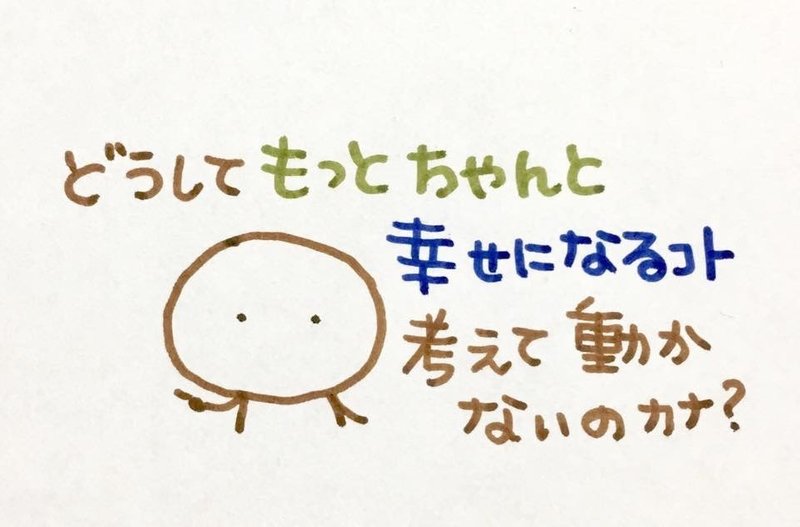 どうしてもっとちゃんと
幸せになるコト
考えて動か
ないのカナ?